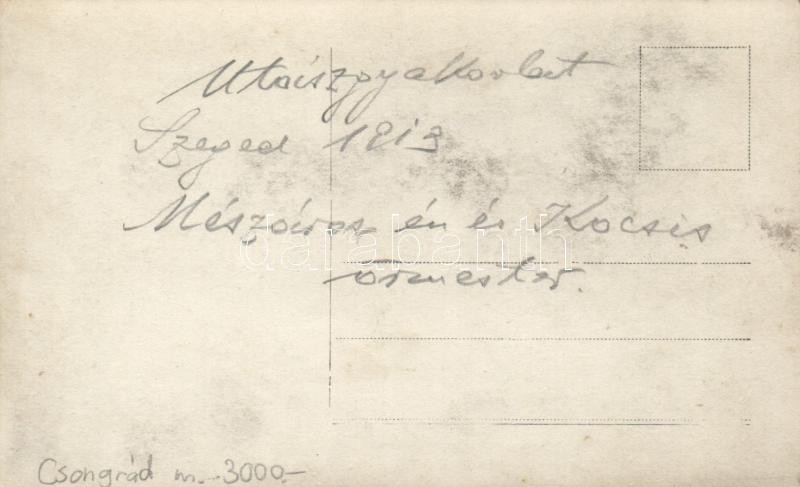 Utászgyakorlat
Szeged 1913
Mészáros én és Kocsis
őrmester.
darabanth
Csongrád m. -3000.-